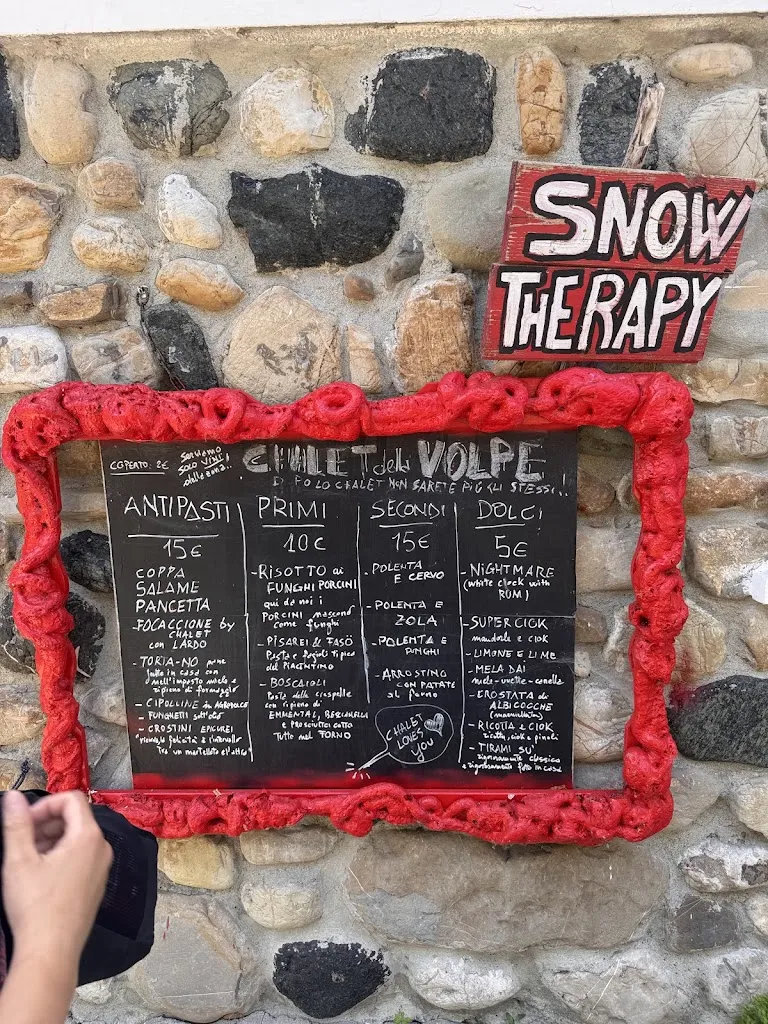 SNOW
THERAPY
COPERTO: 2€
Serviamo
SOLO VINI
della zona..
CHALET della VOLPE
DOPO LO CHALET NON SARETE PIÙ GLI STESSI..!
ANTIPASTI
15€
COPPA
SALAME
PANCETTA
- FOCACCIONE by
CHALET
con LARDO
- TORTA-NO pane
fatto in casa con
nell'impasto miele e
ripieno di formaggio
- CIPOLLINE in AGRODOLCE
- FUNGHETTI sott'olio
- CROSTINI EPICUREI
la felicità è l'intervallo
tra un martellata e l'altra
PRIMI
10€
- RISOTTO ai
FUNGHI PORCINI
qui da noi i
PORCINI nascono
come funghi
- PISAREI & FASÖ
Pasta e fagioli tipica
del PIACENTINO
- BOSCAIOLI
Pasta delle crespelle
con ripieno di
EMMENTAL, BESCIAMELLA
e PROSCIUTTO COTTO
Tutto nel FORNO
SECONDI
15€
- POLENTA
E CERVO
- POLENTA E
ZOLA
- POLENTA E
FUNGHI
- ARROSTINO
CON PATATE
al forno
CHALET
LOVES
YOU
DOLCI
5€
- NIGHTMARE
(white clock with
RUM)
- SUPER CIOK
mandorle e ciok
- LIMONE E LIME
- MELA DAI
mele-uvette-cannella
- CROSTATA DI
ALBICOCCHE
- RICOTTA e CIOK
ricotta, ciok e pinoli
- TIRAMI SU'
rigorosamente classico
e rigorosamente fatto in casa